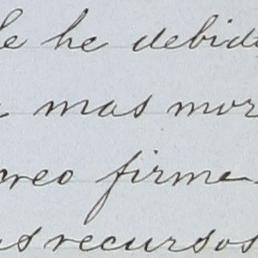 le he debido
mas mor
creo firme
us recursos